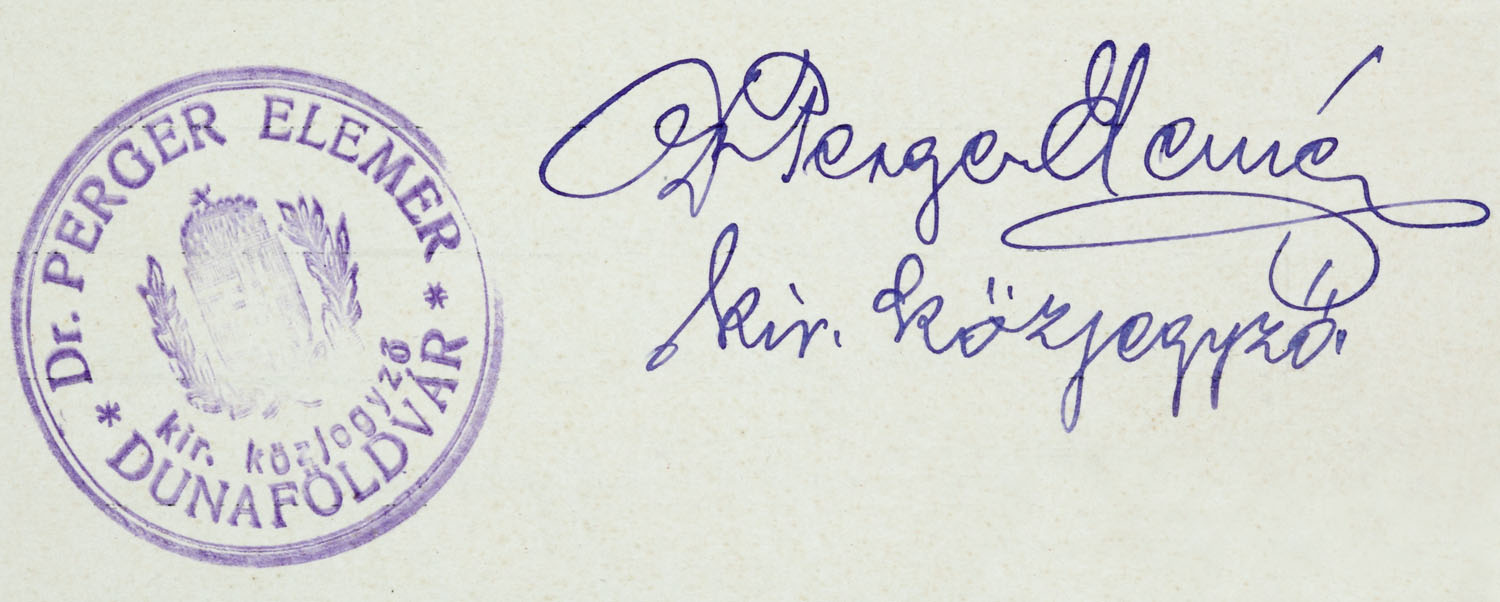 Dr. PERGER ELEMER
kir. közjegyző
* DUNAFÖLDVÁR *
Dr Perger Elemér
kir. közjegyző.